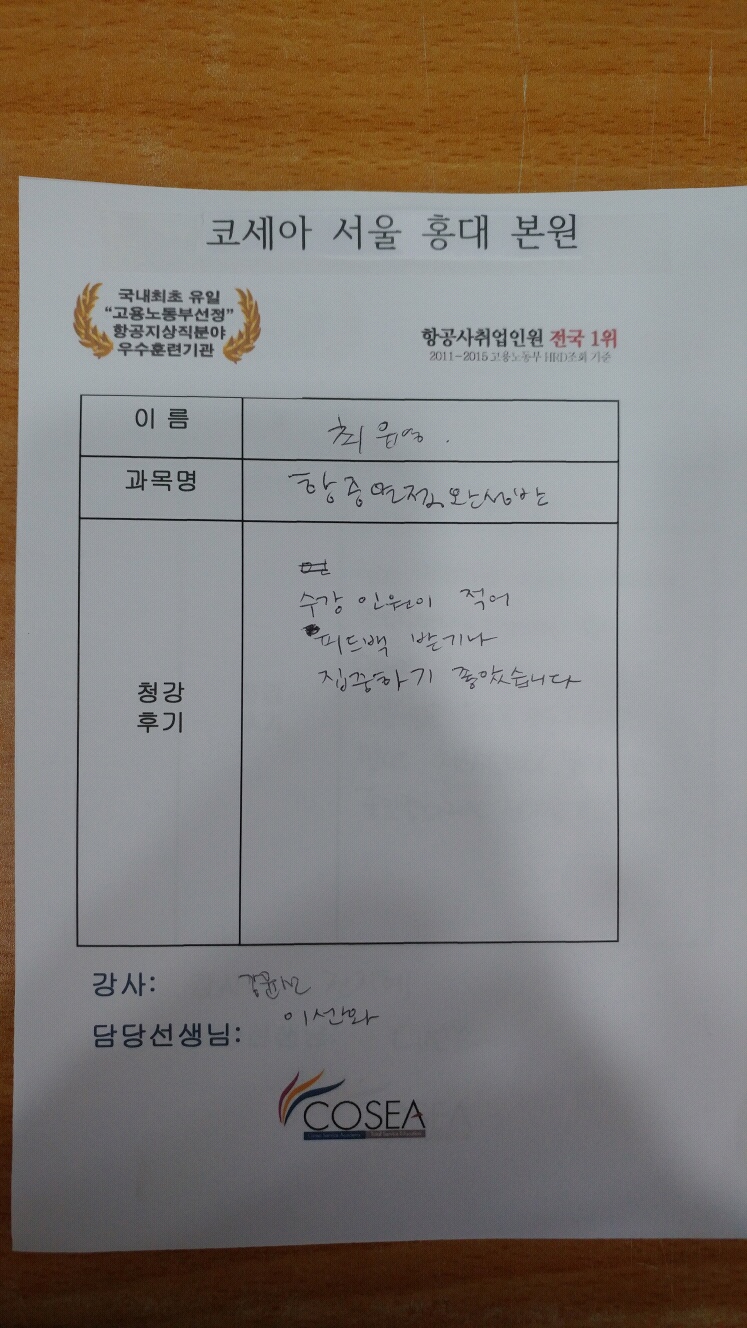 코세아 서울 홍대 본원
국내최초 유일
"고용노동부선정"
항공지상직분야
우수훈련기관
항공사취업인원 전국 1위
2011-2015 고용노동부 HRD조회 기준
이 름
최
과목명
완성반
청강
후기
수강 인원이 적어
피드백 받기나
집중하기 좋았습니다
강사:
이선화
담당선생님:
COSEA